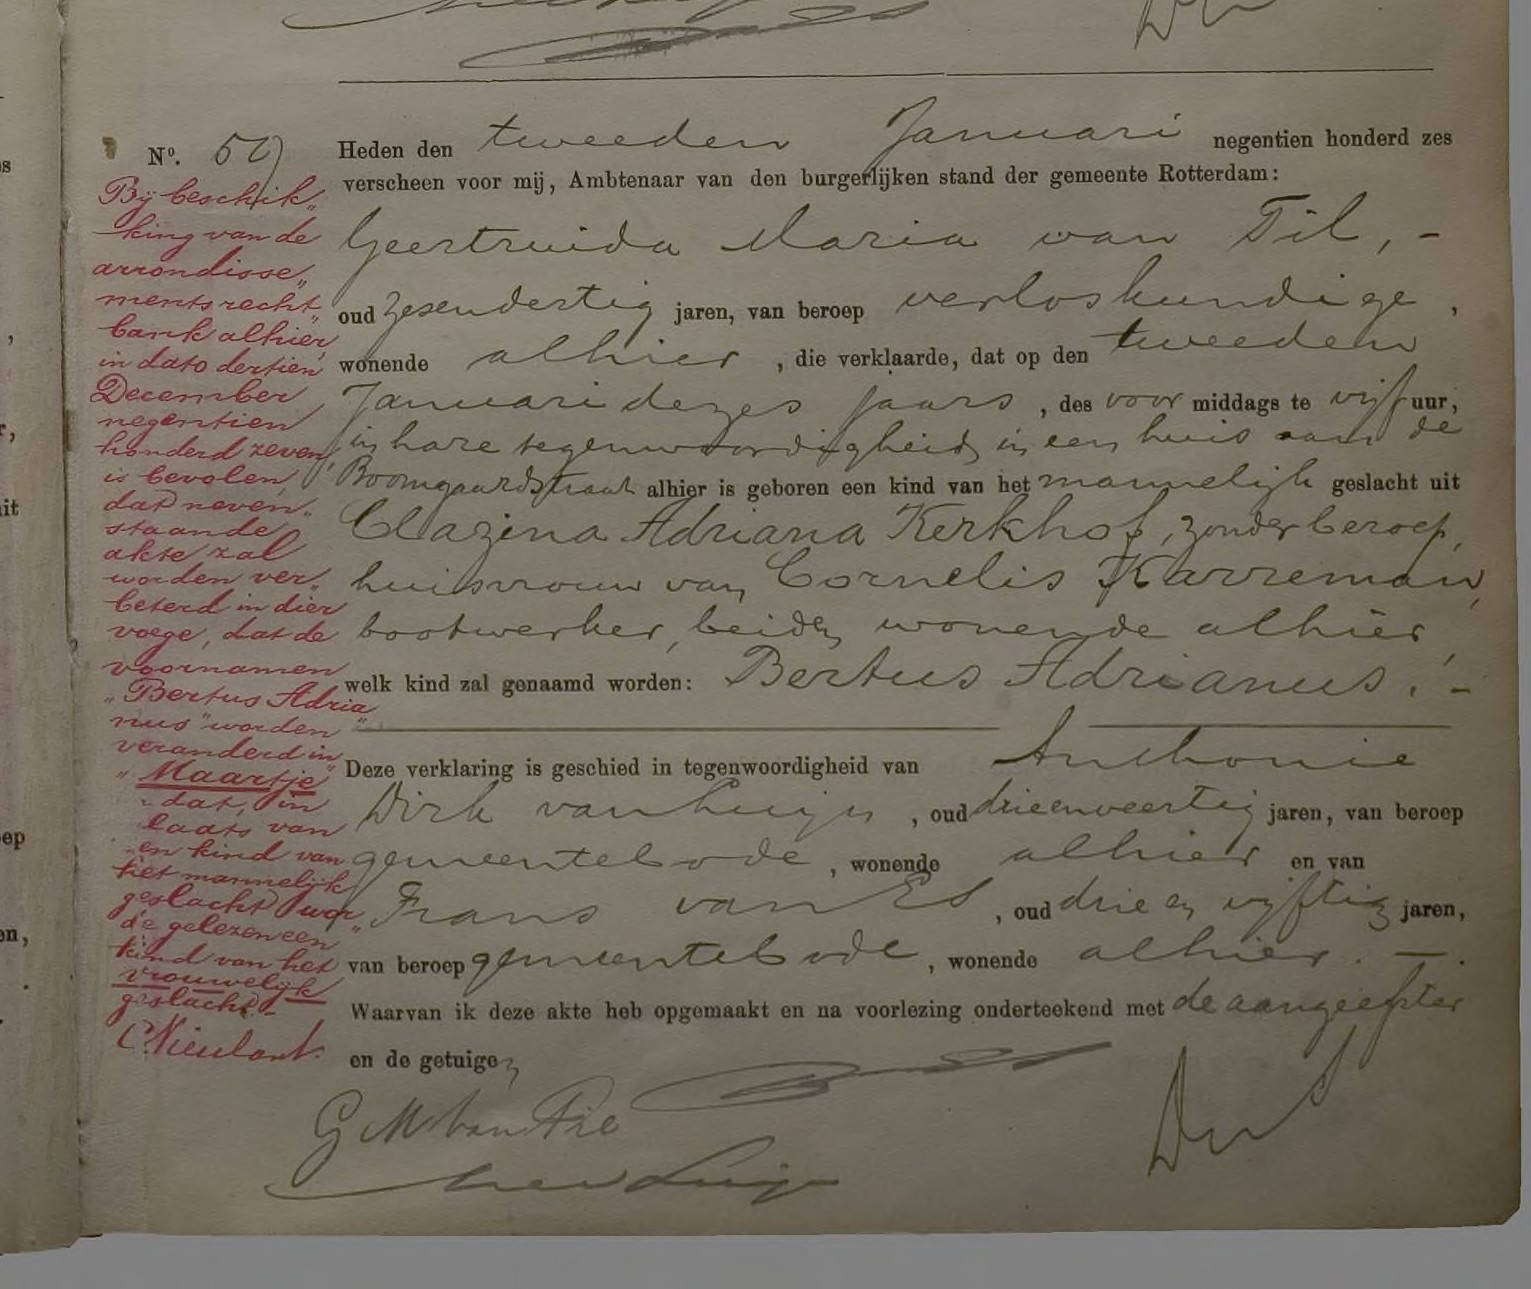 Nº. 59
Heden den tweeden Januari negentien honderd zes
verscheen voor mij, Ambtenaar van den burgerlijken stand der gemeente Rotterdam:
Geertruida Maria van Til, -
oud zesendertig jaren, van beroep verloskundige,
wonende alhier, die verklaarde, dat op den tweeden
Januari dezes jaars, des voor middags te vijf uur,
in hare tegenwoordigheid in een huis aan de
Boomgaardstraat alhier is geboren een kind van het mannelijk geslacht uit
Clazina Adriana Kerkhof, zonder beroep,
huisvrouw van Cornelis Karreman,
bootwerker, beiden wonende alhier,
welk kind zal genaamd worden: Bertus Adrianus. -
Deze verklaring is geschied in tegenwoordigheid van Anthonie
Dirk van Luijn, oud drieenveertig jaren, van beroep
gemeentebode, wonende alhier en van
Frans van Es, oud drie en vijftig jaren,
van beroep gemeentebode, wonende alhier. -
Waarvan ik deze akte heb opgemaakt en na voorlezing onderteekend met de aangeefster
en de getuigen
G M van Til
van Luijn
Bij beschik„
king van de
arrondisse„
mentsrecht„
bank alhier,
in dato dertien
December
negentien
honderd zeven,
is bevolen,
dat neven„
staande
akte zal
worden ver„
beterd in dier
voege, dat de
voornamen
„Bertus Adria
nus" worden
veranderd in
„Maartje"
dat, in
laats van
en kind van
het mannelijk
geslacht" wor„
de gelezen een
kind van het
vrouwelijk
geslacht -
C. Nieulant.